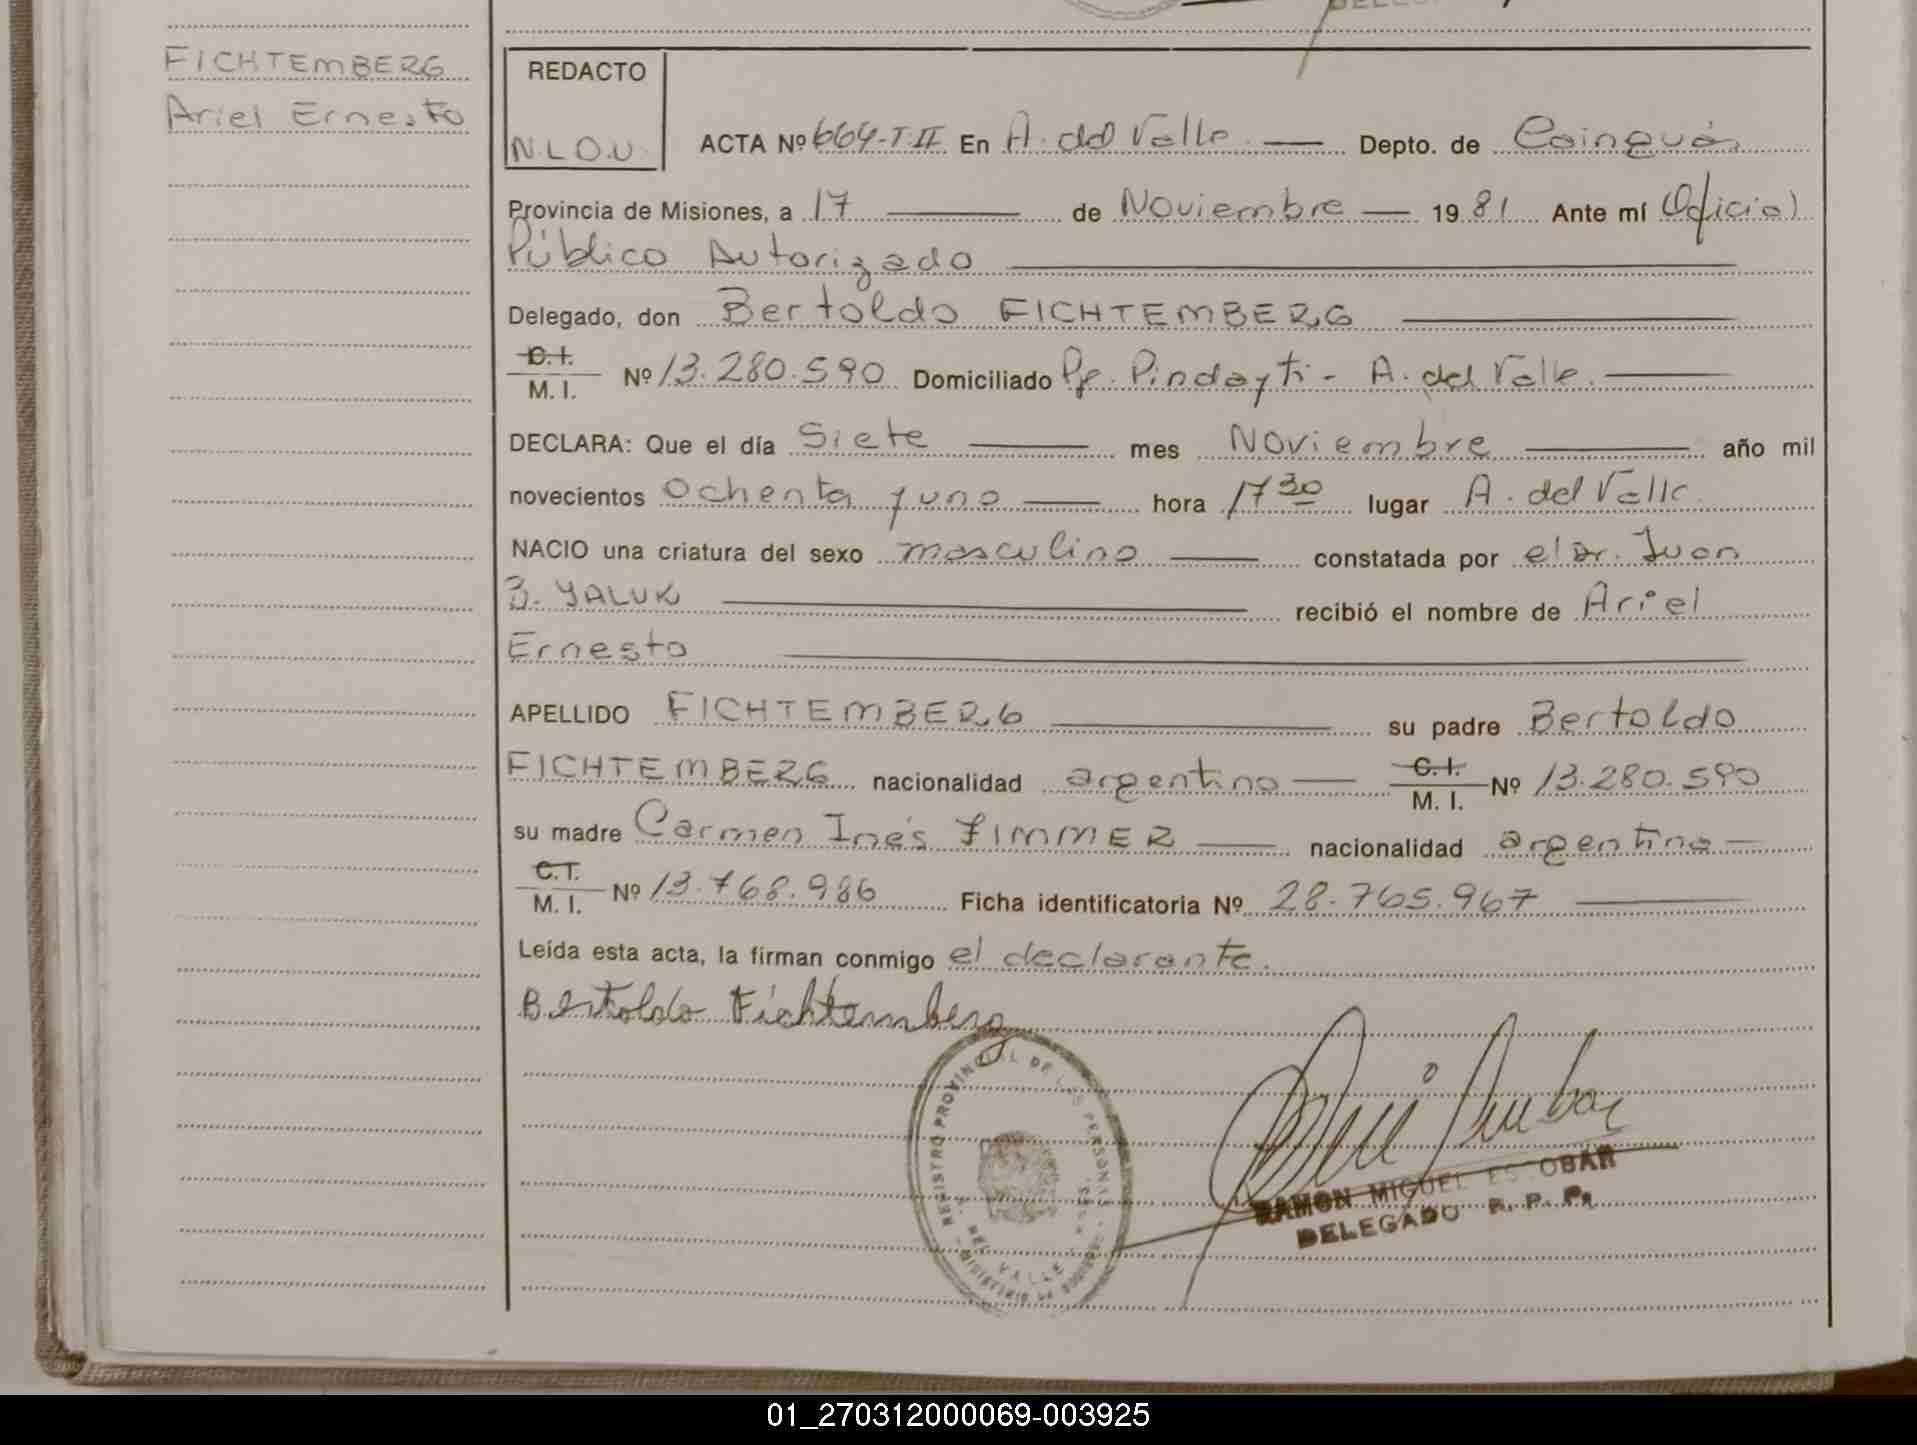 FICHTEMBERG
Ariel Ernesto
REDACTO
N.L.O.U.
ACTA Nº 664-T.II En A. del Valle Depto. de Cainguás
Provincia de Misiones, a 17 de Noviembre 1981 Ante mí (Oficial)
Público Autorizado
Delegado, don Bertoldo FICHTEMBERG
C.I.
M. I. Nº 13.280.590 Domiciliado Pje. Pindayti - A. del Valle.
DECLARA: Que el día Siete mes Noviembre año mil
novecientos Ochenta y uno hora 17 30 lugar A. del Valle.
NACIO una criatura del sexo masculino constatada por el Dr. Juan
B. YALUK recibió el nombre de Ariel
Ernesto
APELLIDO FICHTEMBERG su padre Bertoldo
FICHTEMBERG nacionalidad argentino C. I.
M. I. Nº 13.280.590
su madre Carmen Inés ZIMMER nacionalidad argentina
C.T.
M. I. Nº 13.768.986 Ficha identificatoria Nº 28.765.967
Leída esta acta, la firman conmigo el declarante.
Bertoldo Fichtemberg
REGISTRO PROVINCIAL DE LAS PERSONAS
DEL VALLE
RAMON MIGUEL ESCOBAR
DELEGADO R. P. P.
01_270312000069-003925